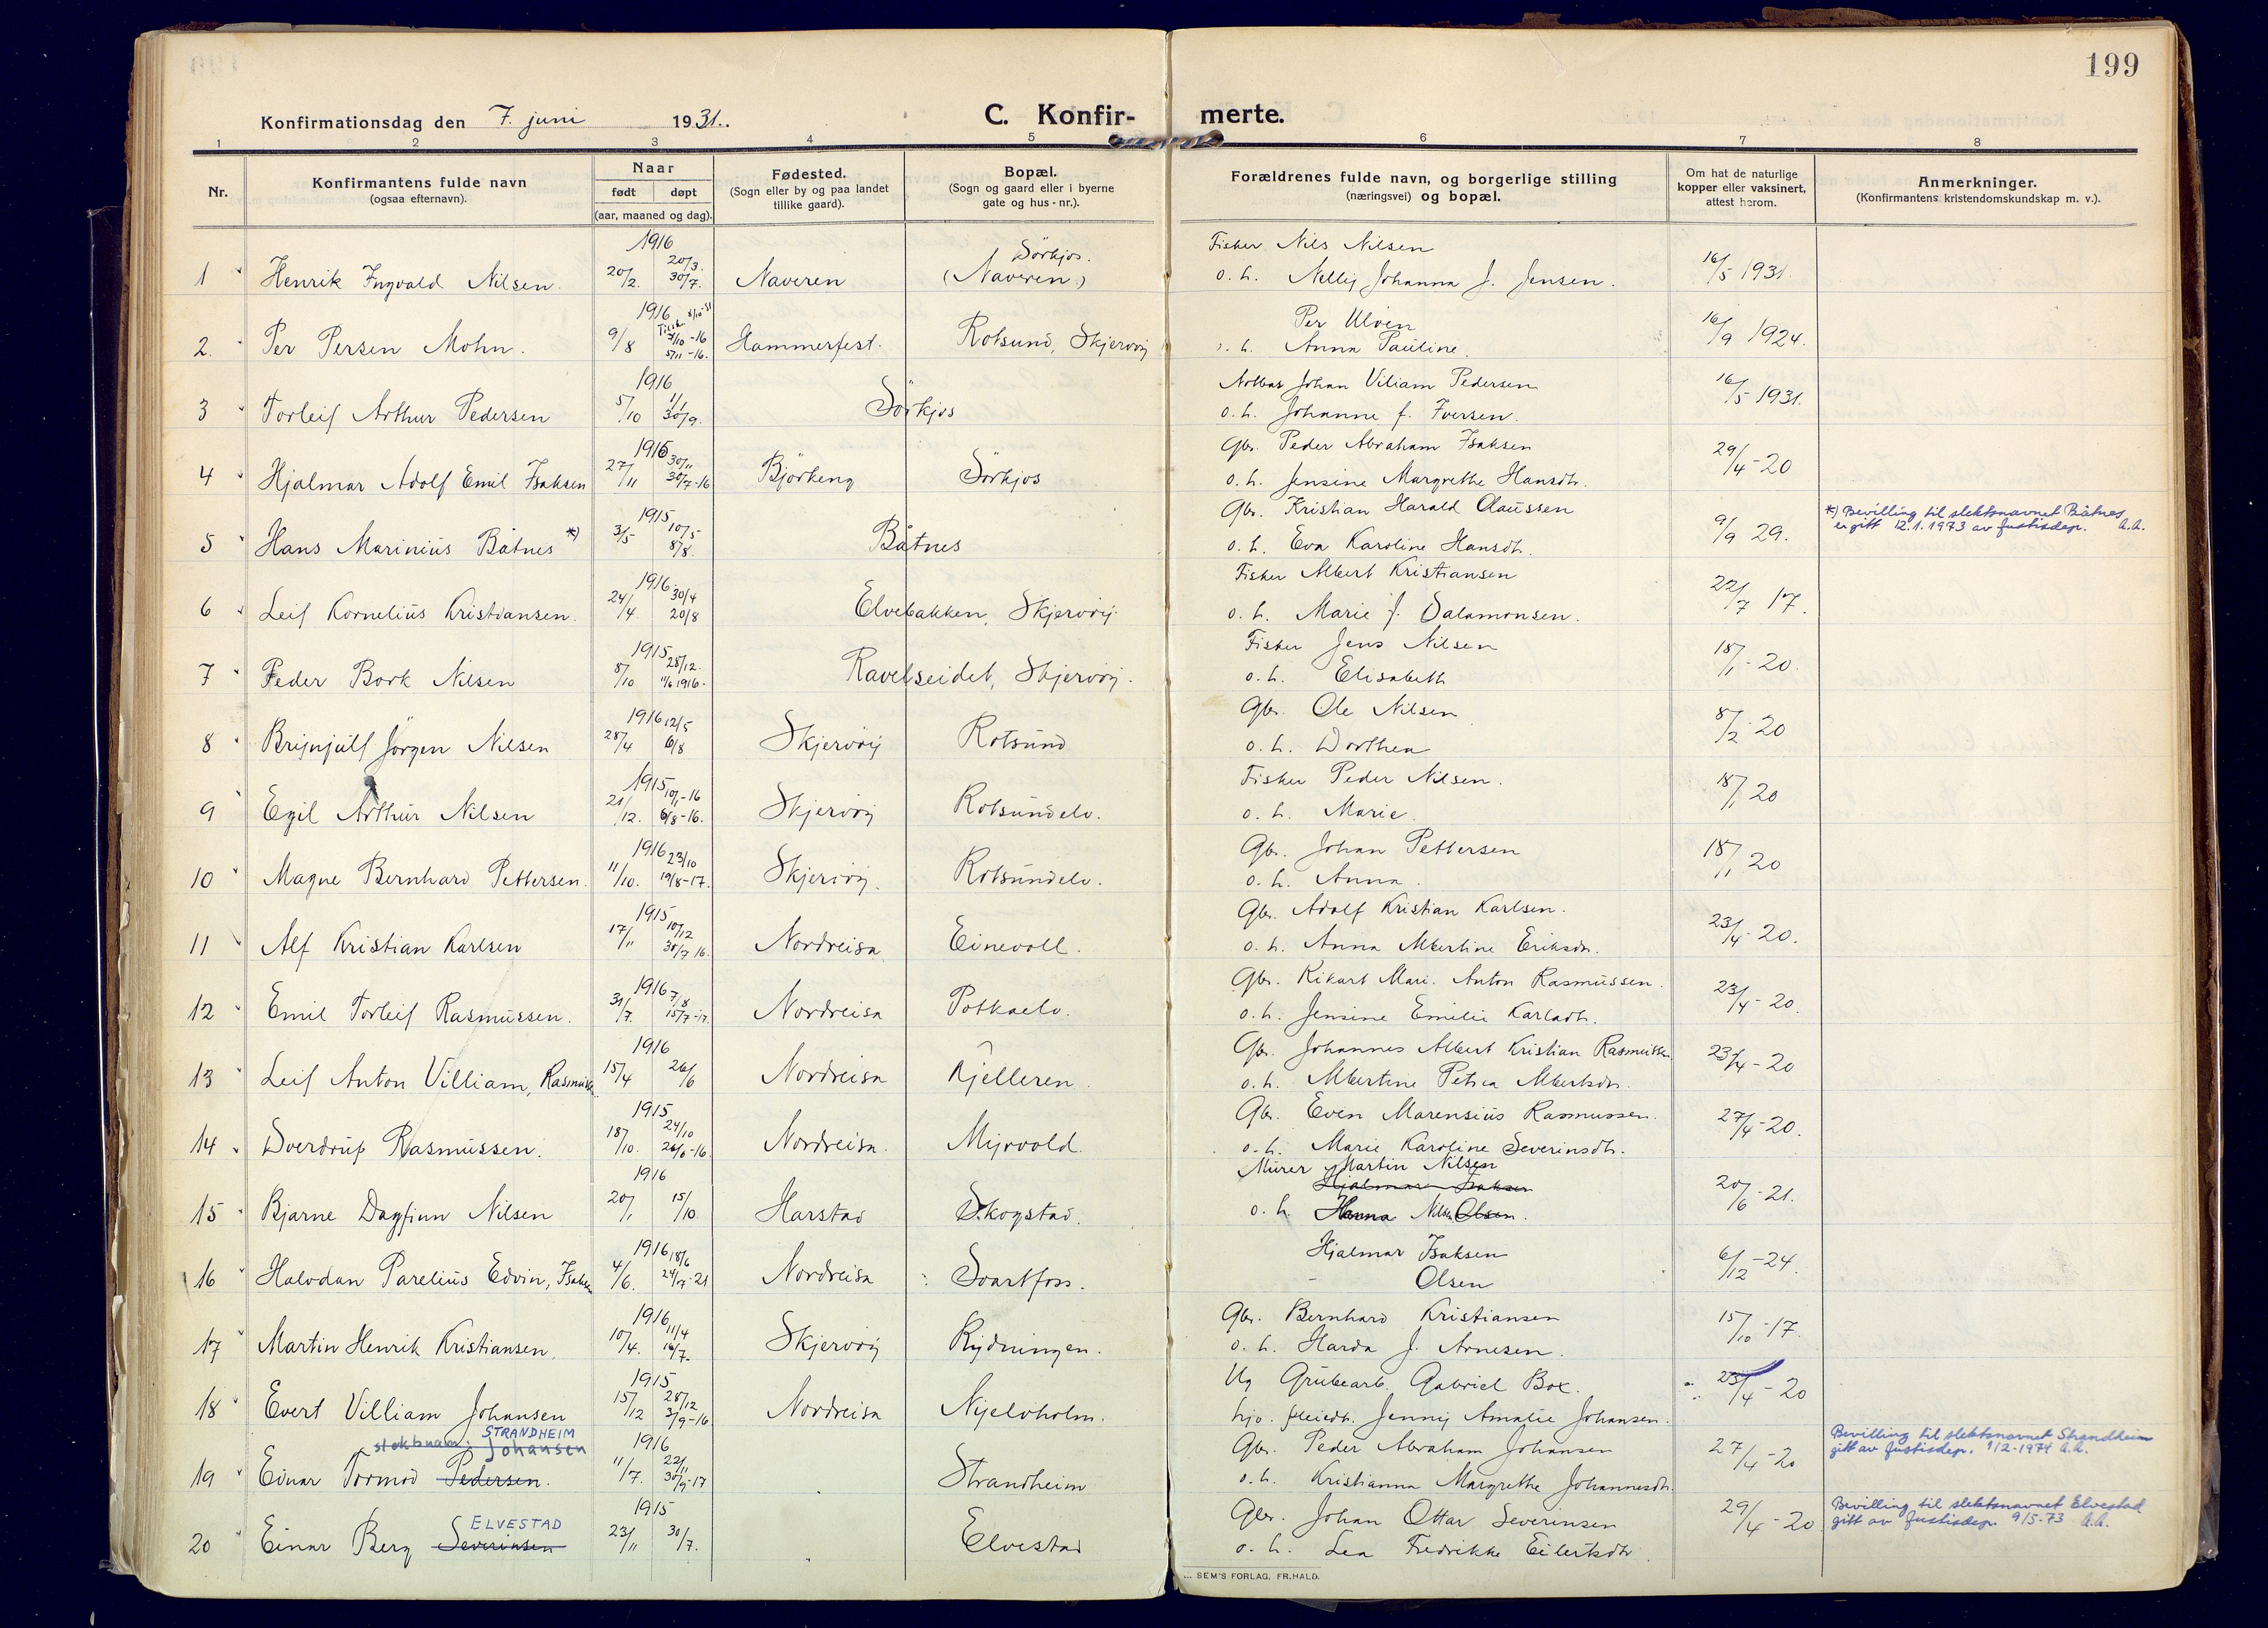 199
Konfirmationsdag den 7. juni 1931.
C. Konfir- merte.
1 2 3 4 5 6 7 8
Nr.
Konfirmantens fulde navn
(ogsaa efternavn).
Naar
født døpt
(aar, maaned og dag).
Fødested.
(Sogn eller by og paa landet
tillike gaard).
Bopæl.
(Sogn og gaard eller i byerne
gate og hus - nr.).
Forældrenes fulde navn, og borgerlige stilling
(næringsvei) og bopæl.
Om hat de naturlige
kopper eller vaksinert,
attest herom.
Anmerkninger.
(Konfirmantens kristendomskundskap m. v.).
1916 Sörkjos. Fisker Nils Nilsen
1 Henrik Ingvald Nilsen. 20/2. 20/3. 30/7. Naveren (Naveren) o. h. Nelly Johanna J. Jensen. 16/5 1931.
1916 Per Ulven
2. Per Persen Mohn. 9/8 5/11-16. Hammerfest. Rotsund, Skjervöy Anna Pauline. 16/9 1924.
1916 Johan Viliam Pedersen
3 Torleif Arthur Pedersen 5/10 1/1 30/9. Sörkjos o. h. Johanne f. Iversen. 16/5-1931.
1915 Gbr. Peder Abraham Isaksen
4 Hjalmar Adolf Emil Isaksen 27/11 30/11 30/7-16 Björkeng Sörkjos o. h. Jensine Margrethe Hansdtr. 29/4-20
1915 Gbr. Kristian Harald Claussen
5 Hans Marinius Båtnes *) 3/5 10/5 8/8. Båtnes o. h. Eva Karoline Hansdtr. 9/9 29.
*) Bevilling til slektsnavnet Båtnes
er gitt 12.1.1973 av Justisdep. A.A.
1916. Fisker Albert Kristiansen
6 Leif Kornelius Kristiansen. 24/4 30/4 20/8 Elvebakken, Skjervöy o. h. Marie J. Salamonsen. 22/7 17.
1915 Fisker Jens Nilsen
7 Peder Bork Nilsen 8/10 28/12. 11/6 1916. Ravelseidet, Skjervöy. o. h. Elisabeth 18/1-20.
1916 Gbr. Ole Nilsen
8 Brynjulf Jörgen Nilsen 28/4 12/5 6/8 Skjervöy Rotsund o. h. Dorthea 8/2-20
1915 Fisker Peder Nilsen.
9 Egil Arthur Nilsen 21/12. 10/1-16 6/8-16. Skjervöy Rotsundelv. o. h. Marie. 18/1 20
1916 Gbr. Johan Pettersen
10 Magne Bernhard Pettersen. 11/10. 23/10 19/8-17. Skjervöy. Rotsundelv. o. h. Anna. 18/1 20
1915 Gbr. Adolf Kristian Karlsen.
11 Alf Kristian Karlsen 17/11 10/12 30/7 16. Nordreisa Einevoll. o. h. Anna Albertine Eriksdtr. 23/4-20.
1916 Gbr. Rikart Mari. Anton Rasmussen.
12 Emil Torleif Rasmussen. 31/7. 7/8 15/7-17. Nordreisa Potkaelv. o. h. Jensine Emilie Karlsdtr. 23/4-20.
1916 Gbr. Johannes Albert Kristian Rasmussen
13 Leif Anton Villiam, Rasmussen 15/4 26/6 Nordreisa Kjelleren. o. h. Albertine Petrea Albertsdtr. 23/4-20
1915 Gbr. Even Marensius Rasmussen.
14 Sverdrup Rasmussen. 18/10. 24/10 26/6-16. Nordreisa. Myrvold. o. h. Marie Karoline Severinsdtr. 27/4-20.
1916 Murer Martin Nilsen
Hjalmar Isaksen
15 Bjarne Dagfinn Nilsen 20/1 15/10. Harstad Skogstad. o. h. Hanna Nilsen Olsen. 20/6-21.
1916 Hjalmar Isaksen
16 Halvdan Parelius Edvin, Isaksen 4/6. 18/6 24/7-21 Nordreisa Svartfoss. Olsen 6/12-24.
1916 Gbr. Bernhard Kristiansen
17 Martin Henrik Kristiansen. 10/4. 11/4 16/7. Skjervöy Rydningen. o. h. Harda J. Arnesen. 15/10-17.
1915 Ug Grubearb. Gabriel Box.
18 Evert Villiam Johansen 15/12 28/12 3/9-16 Nordreisa Nyelvholm. Jenny Amalie Johansen. 23/4-20
STRANDHEIM
slektsnavn: Johansen 1916 Gbr. Peder Abraham Johansen
19 Einar Tormod Pedersen. 11/7. 22/11 30/9-17 Strandheim o. h. Kristianna Margrethe Johannesdtr. 27/4-20
Bevilling til slektsnavnet Strandheim
gitt av Justisdep. 1/2-1974 A.A.
ELVESTAD 1915 Gbr. Johan Ottar Severinsen
20 Einar Berg Severinsen 23/11 30/7. Elvestad o. h. Lea Fredrikke Eilertsdtr. 29/4-20
Bevilling til slektsnavnet Elvestad
gitt av Justisdep. 9/5-73 A.A.
SEM'S FORLAG, FR.HALD.